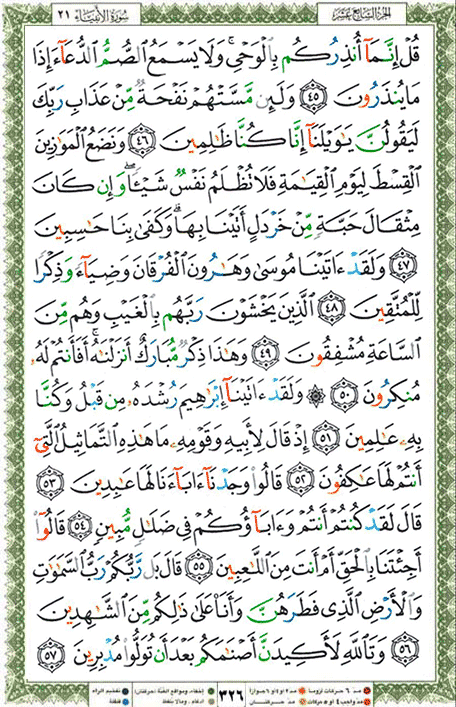 سُورَةُ الأَنبِيَاءِ ٢١
الجزء السابع عشر
قُلْ إِنَّمَآ أُنذِرُكُم بِٱلْوَحْىِ ۚ وَلَا يَسْمَعُ ٱلصُّمُّ ٱلدُّعَآءَ إِذَا
مَا يُنذَرُونَ ٤٥ وَلَئِن مَّسَّتْهُمْ نَفْحَةٌ مِّنْ عَذَابِ رَبِّكَ
لَيَقُولُنَّ يَٰوَيْلَنَآ إِنَّا كُنَّا ظَٰلِمِينَ ٤٦ وَنَضَعُ ٱلْمَوَٰزِينَ
ٱلْقِسْطَ لِيَوْمِ ٱلْقِيَٰمَةِ فَلَا تُظْلَمُ نَفْسٌ شَيْـًٔا ۖ وَإِن كَانَ
مِثْقَالَ حَبَّةٍ مِّنْ خَرْدَلٍ أَتَيْنَا بِهَا ۗ وَكَفَىٰ بِنَا حَٰسِبِينَ
٤٧ وَلَقَدْ ءَاتَيْنَا مُوسَىٰ وَهَٰرُونَ ٱلْفُرْقَانَ وَضِيَآءً وَذِكْرًا
لِّلْمُتَّقِينَ ٤٨ ٱلَّذِينَ يَخْشَوْنَ رَبَّهُم بِٱلْغَيْبِ وَهُم مِّنَ
ٱلسَّاعَةِ مُشْفِقُونَ ٤٩ وَهَٰذَا ذِكْرٌ مُّبَارَكٌ أَنزَلْنَٰهُ ۚ أَفَأَنتُمْ لَهُۥ
مُنكِرُونَ ٥٠ ۞ وَلَقَدْ ءَاتَيْنَآ إِبْرَٰهِيمَ رُشْدَهُۥ مِن قَبْلُ وَكُنَّا
بِهِۦ عَٰلِمِينَ ٥١ إِذْ قَالَ لِأَبِيهِ وَقَوْمِهِۦ مَا هَٰذِهِ ٱلتَّمَاثِيلُ ٱلَّتِىٓ
أَنتُمْ لَهَا عَٰكِفُونَ ٥٢ قَالُوا۟ وَجَدْنَآ ءَابَآءَنَا لَهَا عَٰبِدِينَ ٥٣
قَالَ لَقَدْ كُنتُمْ أَنتُمْ وَءَابَآؤُكُمْ فِى ضَلَٰلٍ مُّبِينٍ ٥٤ قَالُوٓا۟
أَجِئْتَنَا بِٱلْحَقِّ أَمْ أَنتَ مِنَ ٱللَّٰعِبِينَ ٥٥ قَالَ بَل رَّبُّكُمْ رَبُّ ٱلسَّمَٰوَٰتِ
وَٱلْأَرْضِ ٱلَّذِى فَطَرَهُنَّ وَأَنَا۠ عَلَىٰ ذَٰلِكُم مِّنَ ٱلشَّٰهِدِينَ
٥٦ وَتَٱللَّهِ لَأَكِيدَنَّ أَصْنَٰمَكُم بَعْدَ أَن تُوَلُّوا۟ مُدْبِرِينَ ٥٧
٣٢٦
مد ٦ حركات لزوماً
مد ٢ أو ٤ أو ٦ جوازاً
مد واجب ٤ أو ٥ حركات
مد حركتان
إخفاء، ومواقع الغنة (حركتان)
ادغام، وما لا يلفظ
تفخيم الراء
قلقلة